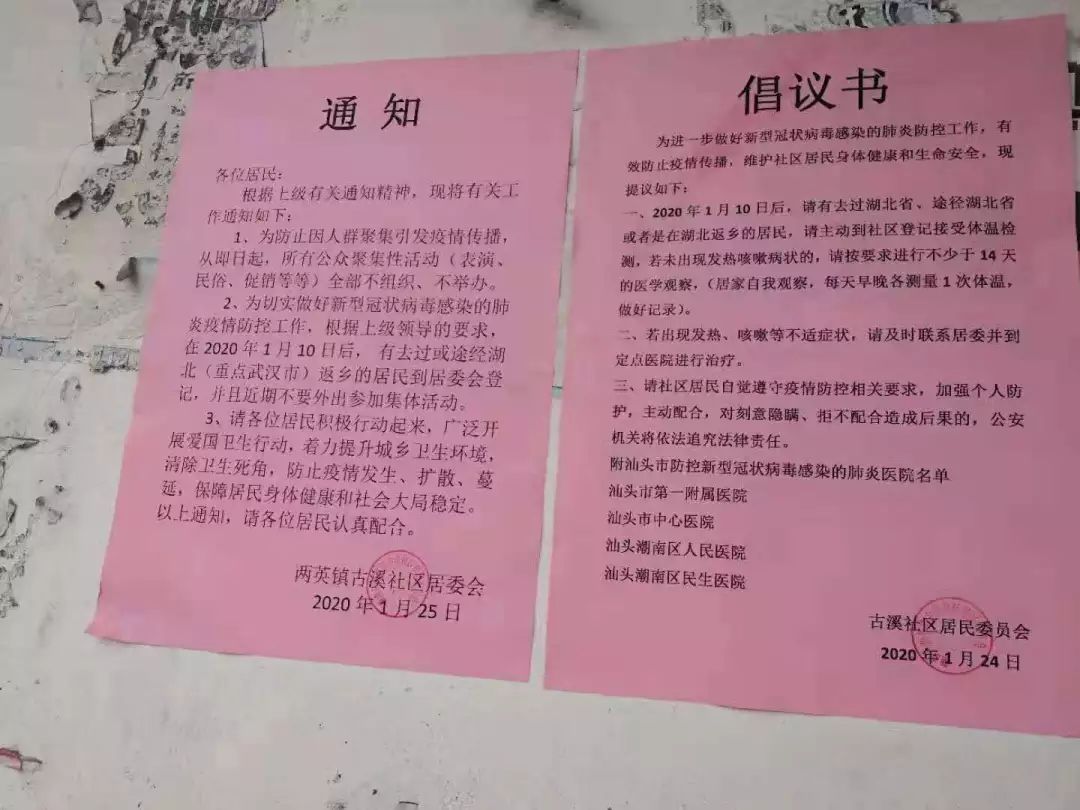 通知
各位居民：
根据上级有关通知精神，现将有关工
作通知如下：
1、为防止因人群聚集引发疫情传播，
从即日起，所有公众聚集性活动（表演、
民俗、促销等等）全部不组织、不举办。
2、为切实做好新型冠状病毒感染的肺
炎疫情防控工作，根据上级领导的要求，
在 2020 年 1 月 10 日后， 有去过或途经湖
北（重点武汉市）返乡的居民到居委会登
记，并且近期不要外出参加集体活动。
3、请各位居民积极行动起来，广泛开
展爱国卫生行动，着力提升城乡卫生环境，
清除卫生死角，防止疫情发生、扩散、蔓
延，保障居民身体健康和社会大局稳定。
以上通知，请各位居民认真配合。
两英镇古溪社区居委会
2020 年 1 月 25 日
倡议书
为进一步做好新型冠状病毒感染的肺炎防控工作，有
效防止疫情传播，维护社区居民身体健康和生命安全，现
提议如下：
一、2020 年 1 月 10 日后，请有去过湖北省、途径湖北省
或者是在湖北返乡的居民，请主动到社区登记接受体温检
测，若未出现发热咳嗽病状的，请按要求进行不少于 14 天
的医学观察，（居家自我观察，每天早晚各测量 1 次体温，
做好记录）。
二、若出现发热、咳嗽等不适症状，请及时联系居委并到
定点医院进行治疗。
三、请社区居民自觉遵守疫情防控相关要求，加强个人防
护，主动配合，对刻意隐瞒、拒不配合造成后果的，公安
机关将依法追究法律责任。
附汕头市防控新型冠状病毒感染的肺炎医院名单
汕头市第一附属医院
汕头市中心医院
汕头潮南区人民医院
汕头潮南区民生医院
古溪社区居民委员会
2020 年 1 月 24 日